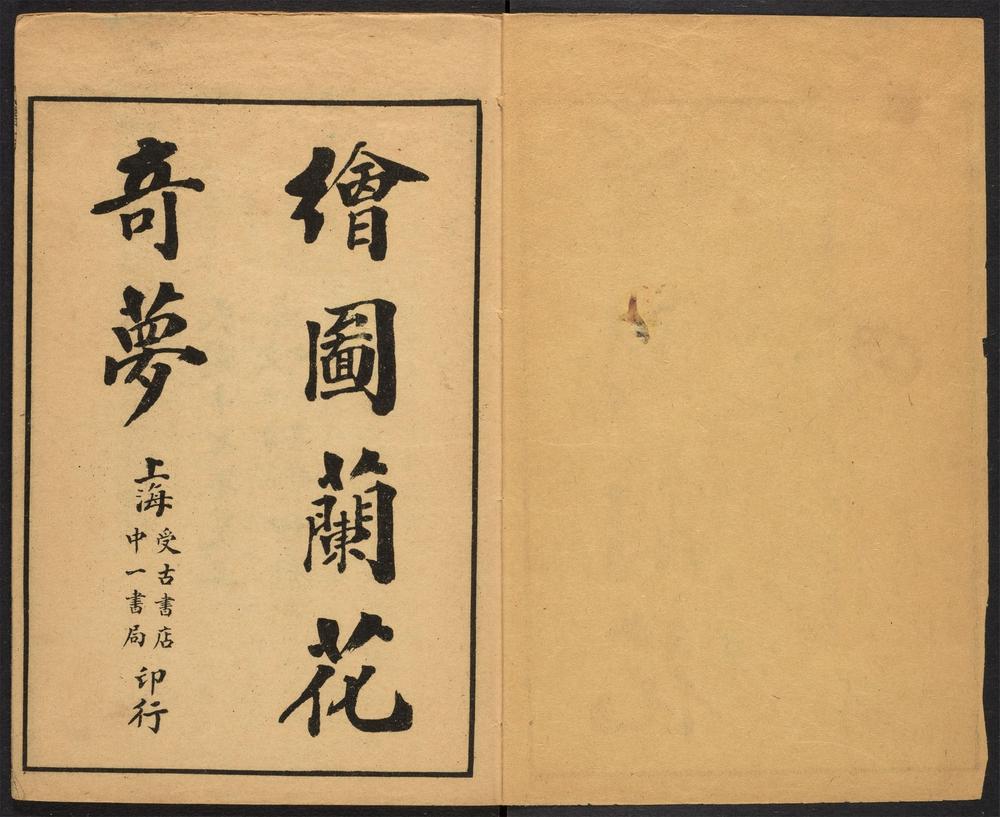 繪圖蘭花
奇夢
上海
受古書店
中一書局
印行